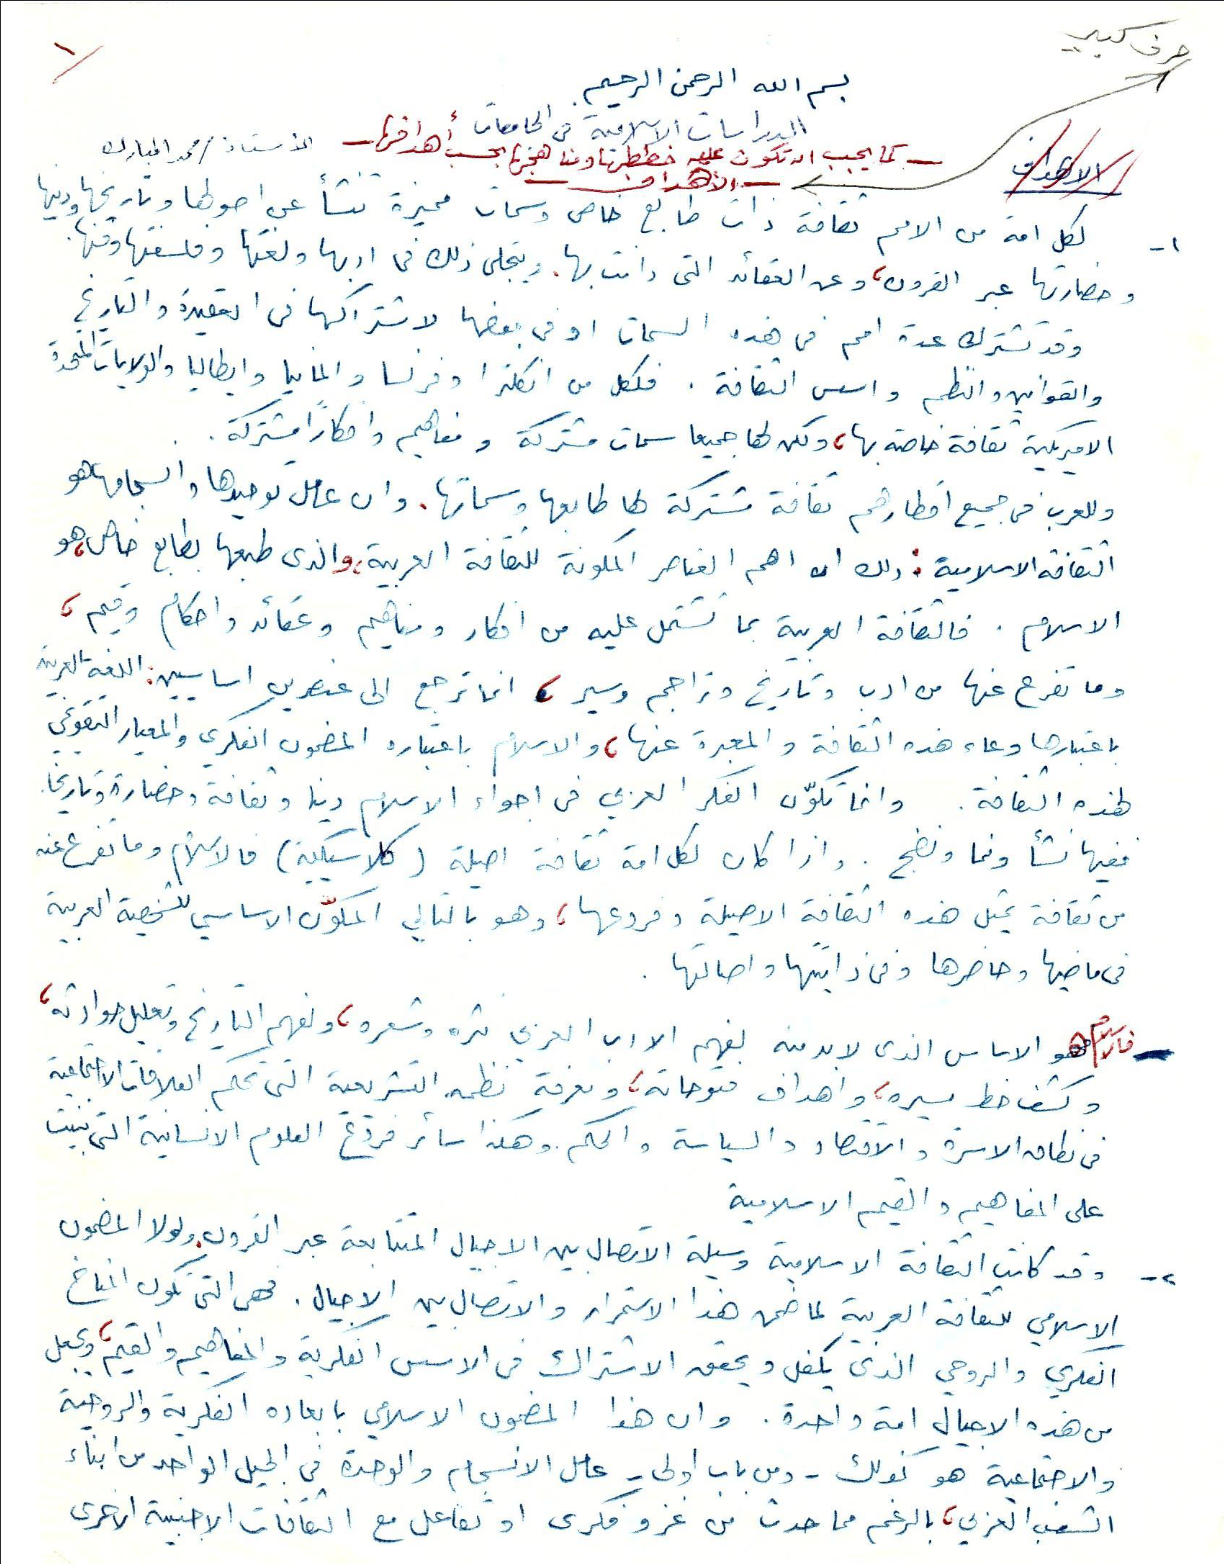 حرف كبير
١
بسم الله الرحمن الرحيم
الدراسات الاسلامية في الجامعات
الاستاذ / محمد المبارك
– كما يجب ان تكون عليه خططها ومناهجها بحسب أهدافها –
الاهداف
– الأهداف –
١– لكل امة من الامم ثقافة ذات طابع خاص وسمات مميزة تنشأ عن اصولها وتاريخها ودينها
وحضارتها عبر القرون، وعن العقائد التي دانت بها. ويتجلى ذلك في ادبها ولغتها وفلسفتها وفنها.
وقد تشترك عدة امم في هذه السمات او في بعضها لاشتراكها في العقيدة والتاريخ
والقوانين والنظم واسس الثقافة. فلكل من انكلترا وفرنسا والمانيا وايطاليا والولايات المتحدة
الامريكية ثقافة خاصة بها، ولكن لها جميعا سمات مشتركة ومفاهيم وافكارًا مشتركة.
وللعرب في جميع اقطارهم ثقافة مشتركة لها طابعها وسماتها. وان عامل توحيدها وانسجامها هو
الثقافة الاسلامية: ذلك ان اهم العناصر المكونة للثقافة العربية، والذي طبعها بطابع خاص، هو
الاسلام. فالثقافة العربية بما تشتمل عليه من افكار ومفاهيم وعقائد واحكام وقيم،
وما تفرع عنها من ادب وتاريخ وتراجم وسير، انما ترجع الى عنصرين اساسيين: اللغة العربية
باعتبارها وعاء هذه الثقافة والمعبرة عنها، والاسلام باعتباره المضمون الفكري والمعيار التقويمي
لهذه الثقافة. وانما تكوّن الفكر العربي في اجواء الاسلام دينا وثقافة وحضارة وتاريخا.
ففيها نشأ ونما ونضج. واذا كان لكل امة ثقافة اصيلة (كلاسيكية) فالاسلام وما تفرع عنه
من ثقافة يمثل هذه الثقافة الاصيلة وفروعها، وهو بالتالي المكوّن الاساسي للشخصية العربية
في ماضيها وحاضرها وفي ذاتيتها واصالتها.
– فالاسلام هو الاساس الذي لابد منه لفهم الادب العربي نثره وشعره، ولفهم التاريخ وتعليل حوادثه،
وكشف خط سيره، واهداف فتوحاته، ومعرفة نظمه التشريعية التي تحكم العلاقات الاجتماعية
في نطاق الاسرة والاقتصاد والسياسة والحكم. وهكذا سائر فروع العلوم الانسانية التي بنيت
على المفاهيم والقيم الاسلامية
٢– وقد كانت الثقافة الاسلامية وسيلة الاتصال بين الاجيال المتتابعة عبر القرون. ولولا المضمون
الاسلامي للثقافة العربية لما ضمن هذا الاستمرار والاتصال بين الاجيال. فهي التي تكون المناخ
الفكري والروحي الذي يكفل ويحقق الاشتراك في الاسس الفكرية والمفاهيم والقيم، ويجعل
من هذه الاجيال امة واحدة. وان هذا المضمون الاسلامي بابعاده الفكرية والروحية
والاجتماعية هو كذلك – ومن باب اولى – عامل الانسجام والوحدة في الجيل الواحد من ابناء
الشعب العربي، بالرغم مما حدث من غزو فكري او تفاعل مع الثقافات الاجنبية الاخرى